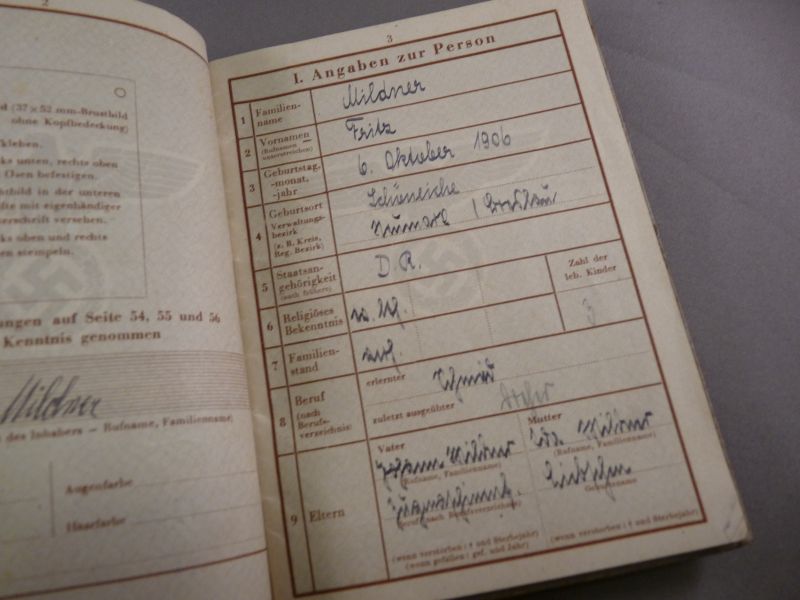 2
d (37×52 mm-Brustbild
ohne Kopfbedeckung)
kleben.
ks unten, rechts oben
Ösen befestigen.
htbild in der unteren
fte mit eigenhändiger
erschrift versehen.
ks oben und rechts
en stempeln.
ungen auf Seite 54, 55 und 56
Kenntnis genommen
Mildner
des Inhabers — Rufname, Familienname
Augenfarbe
Haarfarbe
3
I. Angaben zur Person
1 Familien-
name
Mildner
2 Vornamen
(Rufnamen
unterstreichen)
Fritz
3 Geburtstag,
-monat,
-jahr
6. Oktober 1906
4 Geburtsort
Verwaltungs-
bezirk
(z. B. Kreis,
Reg. Bezirk)
Schöneiche
Neumarkt / Breslau
5 Staatsan-
gehörigkeit
(auch frühere)
D. R.
Zahl der
leb. Kinder
6 Religiöses
Bekenntnis
3
7 Familien-
stand
8 Beruf
(nach
Berufs-
verzeichnis)
erlernter
Schmied
zuletzt ausgeübter
9 Eltern
Vater
Mutter
Mildner
Mildner
(Rufname, Familienname)
(Rufname, Familienname)
(Beruf nach Berufsverzeichnis)
Geburtsname
(wenn verstorben: † und Sterbejahr)
(wenn gefallen: gef. und Jahr)
(wenn verstorben: † und Sterbejahr)